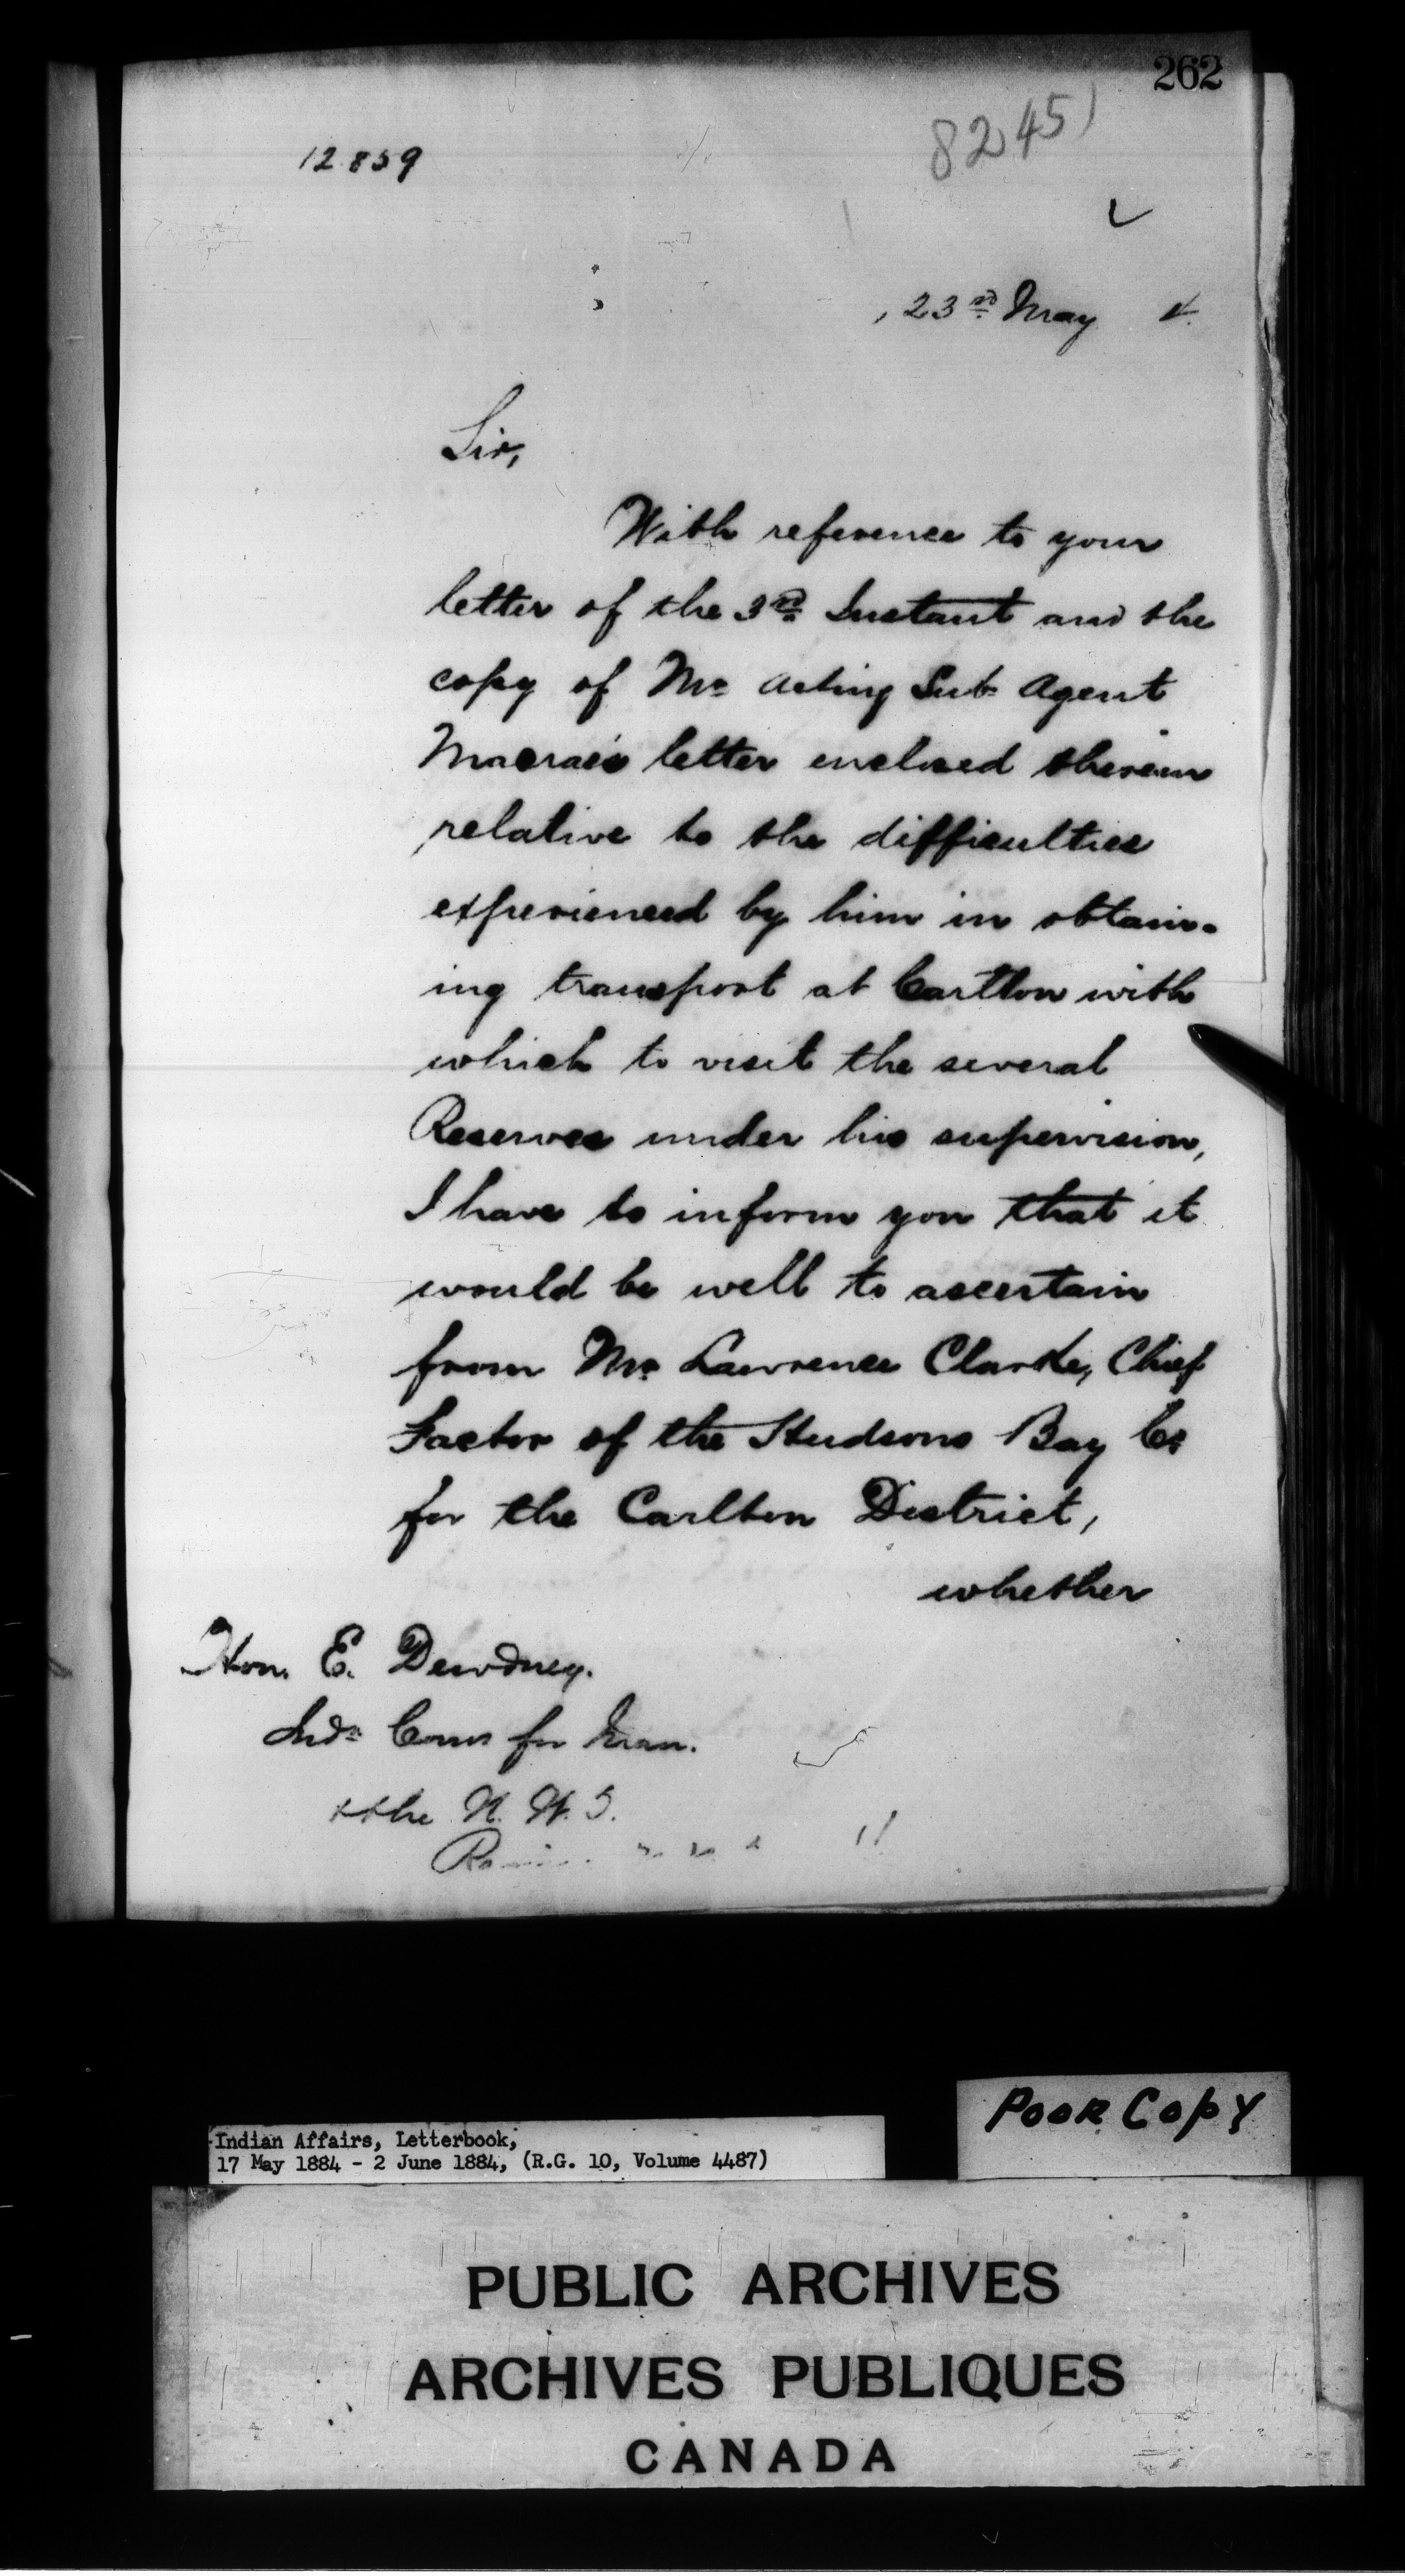 262
8245)
12859
, 23rd May 4.
Sir,
With reference to your
letter of the 3rd Instant and the
copy of Mr Acting Sub Agent
Macrae's letter enclosed therein
relative to the difficulties
experienced by him in obtain-
ing transport at Carlton with
which to visit the several
Reserves under his supervision,
I have to inform you that it
would be well to ascertain
from Mr Lawrence Clarke, Chief
Factor of the Hudsons Bay Co
for the Carlton District,
whether
Hon. E. Dewdney.
Indn Comr for Man.
& the N. W. T.
Poor Copy
Indian Affairs, Letterbook,
17 May 1884 - 2 June 1884, (R.G. 10, Volume 4487)
PUBLIC ARCHIVES
ARCHIVES PUBLIQUES
CANADA